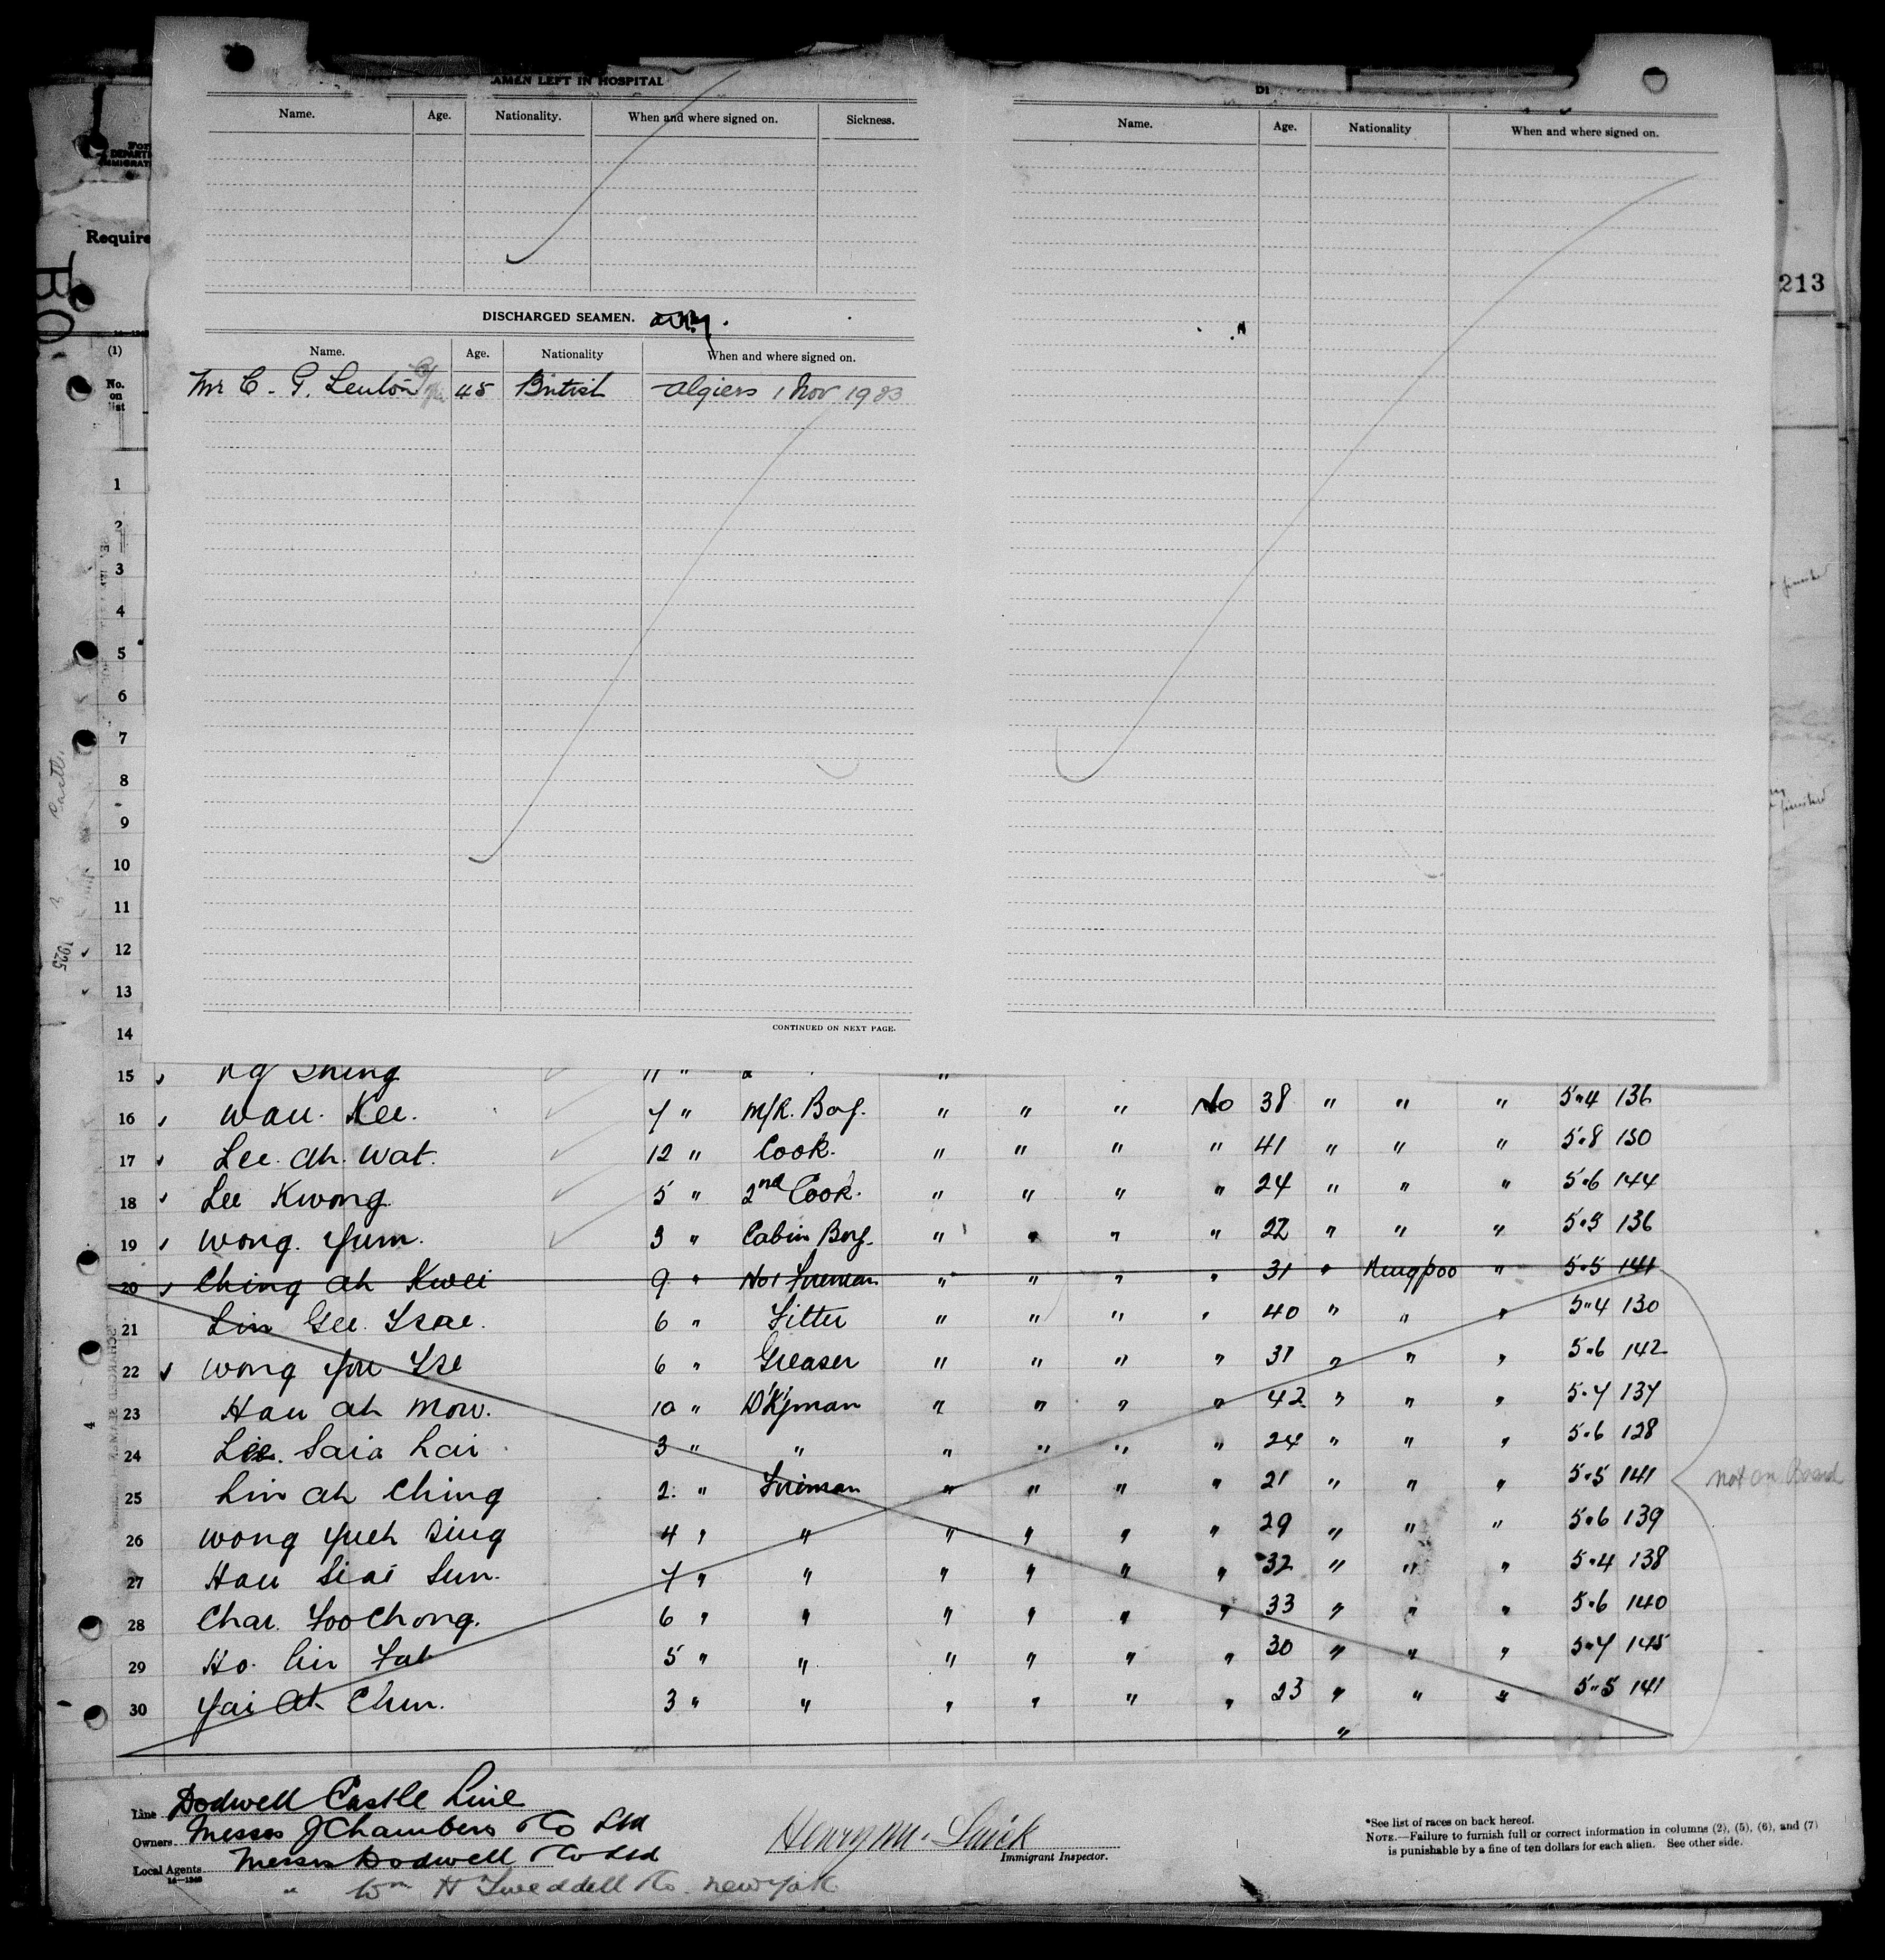 AMEN LEFT IN HOSPITAL
Name. Age. Nationality. When and where signed on. Sickness.
DISCHARGED SEAMEN.
Name. Age. Nationality When and where signed on.
Mr C. P. Lenton 45 British Algiers 1 Nov 1983
CONTINUED ON NEXT PAGE.
DI
Name. Age. Nationality When and where signed on.
For
DEPARTM
IMMIGRAT
Require
213
(1)
No.
on
list
1
2
3
4
5
6
7
8
9
10
11
12
13
14
1925
15 Ng Shing 11 "
16 Wau. Kee. 7 " M/R. Boy. " " " No 38 " " " 5"4 136
17 Lee. Ah. Wat. 12 " Cook. " " " " 41 " " " 5"8 150
18 Lee Kwong 5 " 2nd Cook. " " " " 24 " " " 5"6 144
19 Wong. Yum. 3 " Cabin Boy. " " " " 22 " " " 5"5 136
20 Ching Ah Kwei 9 " No1 Fireman " " " " 31 " Ningpoo " 5"5 141
21 Lin Gee Tsae. 6 " Fitter " " " " 40 " " " 5"4 130
22 Wong You Tse 6 " Greaser " " " " 31 " " " 5"6 142
23 Hau Ah Mow. 10 " D'K'man " " " " 42 " " " 5"7 137
24 Lee. Saia Lai 3 " " " " " " 24 " " " 5"6 128
25 Lin Ah Ching 2. " Fireman " " " " 21 " " " 5"5 141
26 Wong Yueh Sing 4 " " " " " " 29 " " " 5"6 139
27 Hau Siai Sun. 7 " " " " " " 32 " " " 5"4 138
28 Chai. Foo Chong. 6 " " " " " " 33 " " " 5"6 140
29 Ho. Lin Fah 5 " " " " " " 30 " " " 5"7 145
30 Yai Ah Chun. 3 " " " " " " 23 " " " 5"5 141
"
not on Board
Line Dodwell Castle Line
Owners Messrs J Chambers & Co Ltd
Local Agents Messrs Dodwell & Co Ltd
14—1249
" Wm H Tweddell & Co. New York
Immigrant Inspector.
*See list of races on back hereof.
NOTE.—Failure to furnish full or correct information in columns (2), (5), (6), and (7)
is punishable by a fine of ten dollars for each alien. See other side.